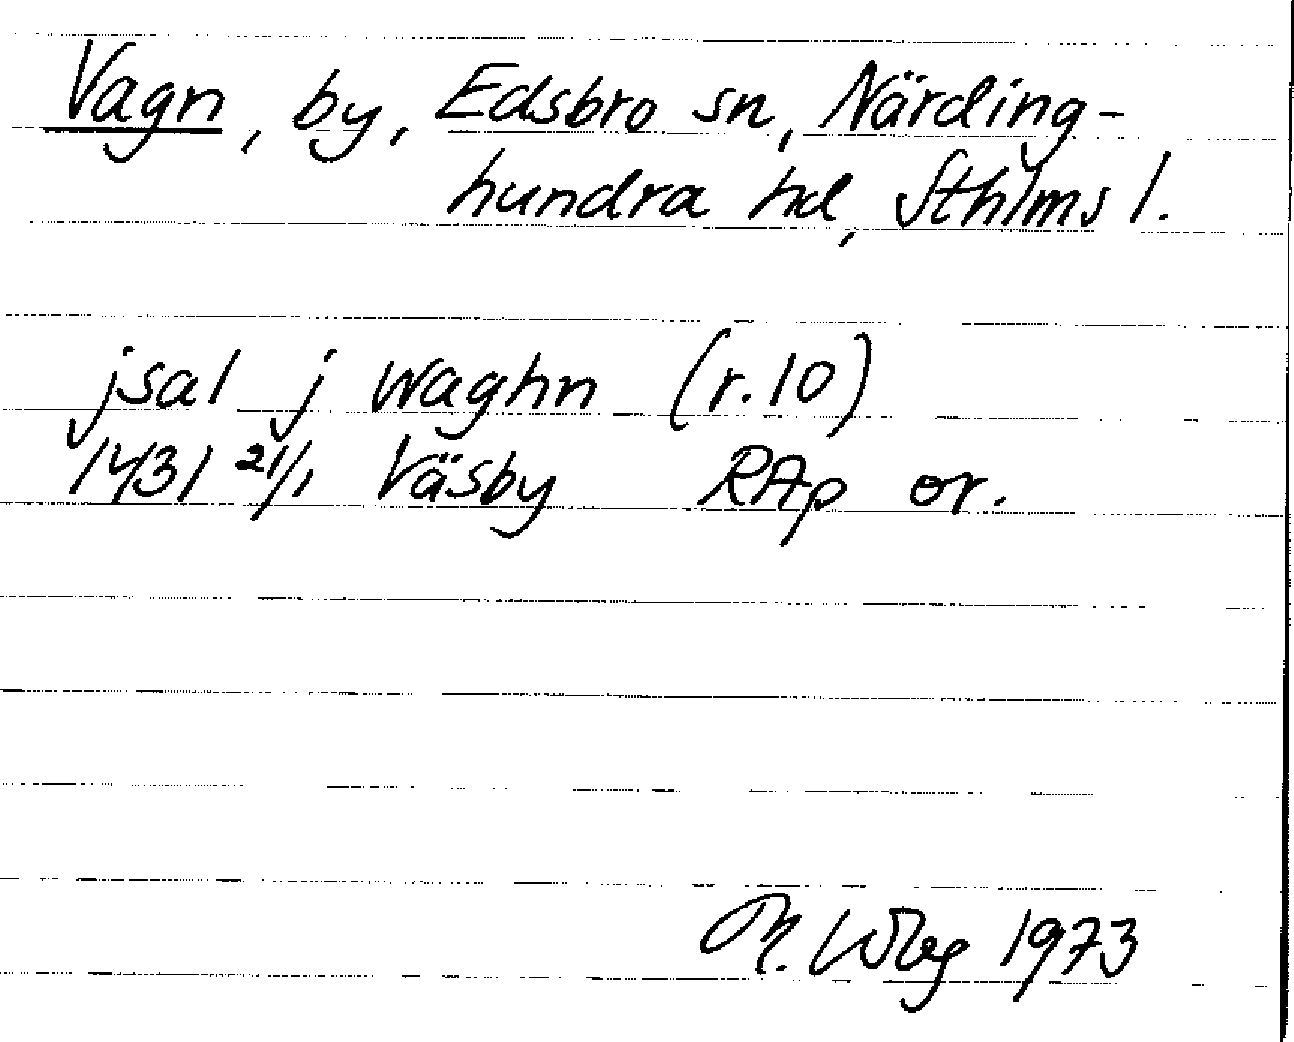 Vagn, by, Edsbro sn, Närding-
hundra hd, Sthlms l.
jsal j waghn (r. 10)
1431 21/1 Väsby RAp or.
1973